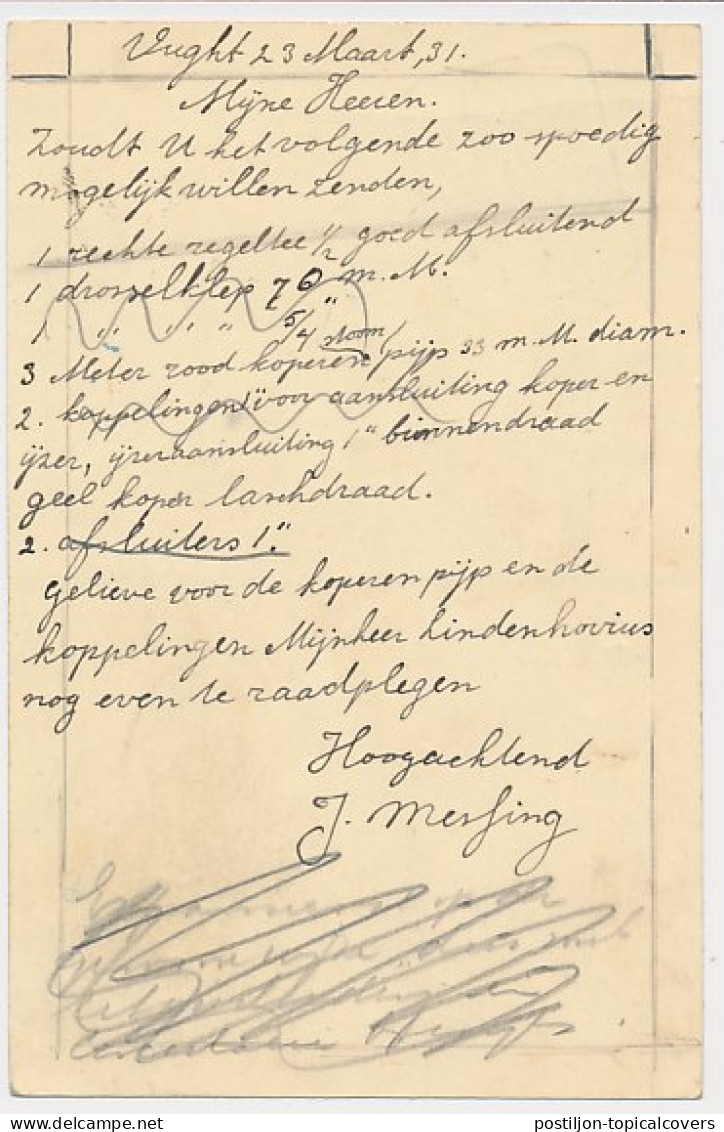 Vught 23 Maart, 31.
Mijne Heeren.
Zoudt U het volgende zoo spoedig
mogelijk willen zenden,
1 rechte regeltee 1/2 goed afsluitend
1 drosselklep 70 m.M.
1 " " " 5/4 "
3 Meter rood koperen stoom pijp 33 m.M. diam.
2. koppelingen 1" voor aansluiting koper en
ijzer, ijzeraansluiting 1" binnendraad
geel koper laschdraad.
2. afsluiters 1".
gelieve voor de koperen pijp en de
koppelingen Mijnheer Lindenhovius
nog even te raadplegen
Hoogachtend
J. Messing
postiljon-topicalcovers
www.delcampe.net